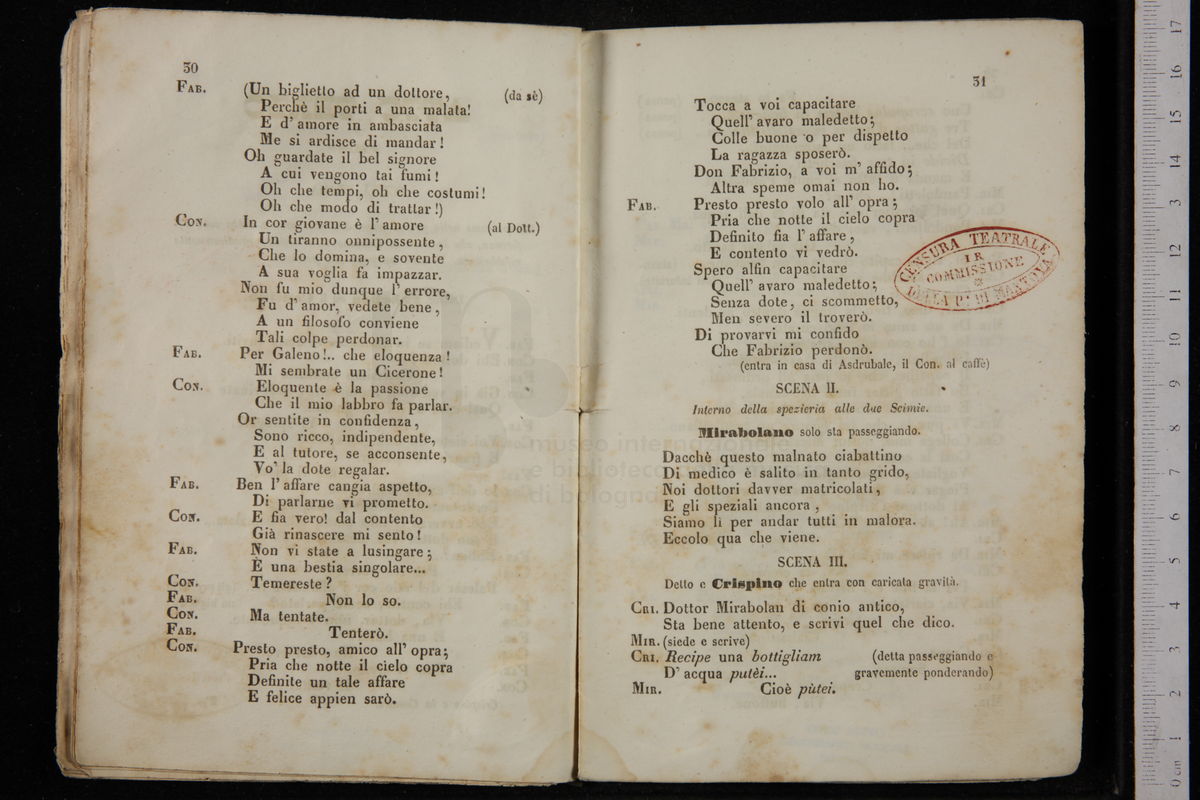 30
FAB. (Un biglietto ad un dottore, (da sè)
Perchè il porti a una malata!
E d' amore in ambasciata
Me si ardisce di mandar!
Oh guardate il bel signore
A cui vengono tai fumi!
Oh che tempi, oh che costumi!
Oh che modo di trattar!)
CON. In cor giovane è l' amore (al Dott.)
Un tiranno onnipossente,
Che lo domina, e sovente
A sua voglia fa impazzar.
Non fu mio dunque l' errore,
Fu d' amor, vedete bene,
A un filosofo conviene
Tali colpe perdonar.
FAB. Per Galeno!.. che eloquenza!
Mi sembrate un Cicerone!
CON. Eloquente è la passione
Che il mio labbro fa parlar.
Or sentite in confidenza,
Sono ricco, indipendente,
E al tutore, se acconsente,
Vo' la dote regalar.
FAB. Ben l' affare cangia aspetto,
Di parlarne vi prometto.
CON. E fia vero! dal contento
Già rinascere mi sento!
FAB. Non vi state a lusingare;
È una bestia singolare...
CON. Temereste?
FAB. Non lo so.
CON. Ma tentate.
FAB. Tenterò.
CON. Presto presto, amico all' opra;
Pria che notte il cielo copra
Definite un tale affare
E felice appien sarò.
31
Tocca a voi capacitare
Quell' avaro maledetto;
Colle buone o per dispetto
La ragazza sposerò.
Don Fabrizio, a voi m' affido;
Altra speme omai non ho.
FAB. Presto presto volo all' opra;
Pria che notte il cielo copra
Definito fia l' affare,
E contento vi vedrò.
Spero alfin capacitare
Quell' avaro maledetto;
Senza dote, ci scommetto,
Men severo il troverò.
Di provarvi mi confido
Che Fabrizio perdonò.
(entra in casa di Asdrubale, il Con. al caffè)
CENSURA TEATRALE
I R
COMMISSIONE
DELLA P. DI MANTOVA
SCENA II.
Interno della spezieria alle due Scimie.
Mirabolano solo sta passeggiando.
Dacchè questo malnato ciabattino
Di medico è salito in tanto grido,
Noi dottori davver matricolati,
E gli speziali ancora,
Siamo lì per andar tutti in malora.
Eccolo qua che viene.
SCENA III.
Detto e Crispino che entra con caricata gravità.
CRI. Dottor Mirabolan di conio antico,
Sta bene attento, e scrivi quel che dico.
MIR. (siede e scrive)
CRI. Recipe una bottigliam (detta passeggiando e
D' acqua putèi... gravemente ponderando)
MIR. Cioè pùtei.
museo internazionale
e biblioteca
di bologna
0 cm 1 2 3 4 5 6 7 8 9 10 11 12 13 14 15 16 17